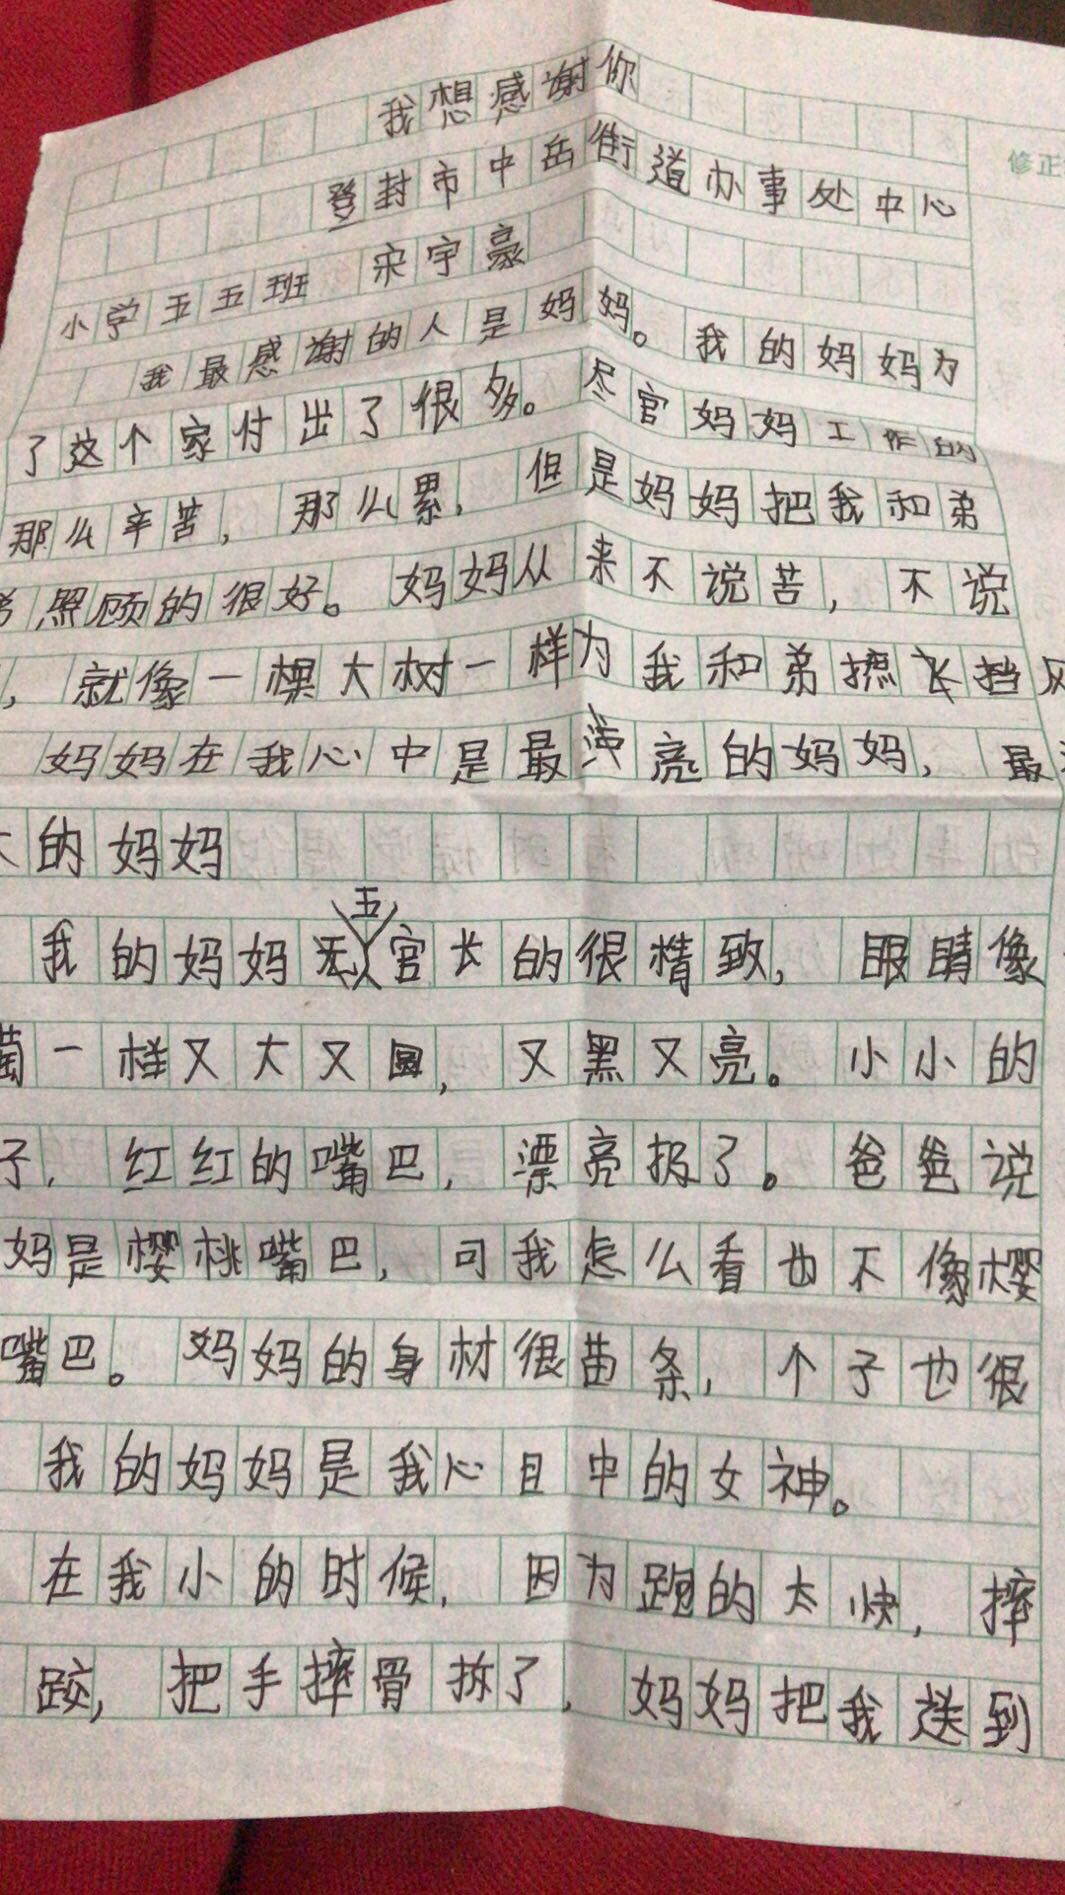 我想感谢你
修正
登封市中岳街道办事处中心
小学五五班 宋宇豪
我最感谢的人是妈妈。我的妈妈为
了这个家付出了很多。尽官妈妈工作的
那么辛苦，那么累，但是妈妈把我和弟
弟照顾的很好。妈妈从来不说苦，不说
，就像一棵大树一样为我和弟遮长挡风
妈妈在我心中是最漂亮的妈妈，最
大的妈妈
我的妈妈五官长的很精致，眼睛像
萄一样又大又圆，又黑又亮。小小的
子，红红的嘴巴，漂亮极了。爸爸说
妈是樱桃嘴巴，可我怎么看也不像樱
嘴巴。妈妈的身材很苗条，个子也很
我的妈妈是我心目中的女神。
在我小的时候，因为跑的太快，摔
跤，把手摔骨折了，妈妈把我送到